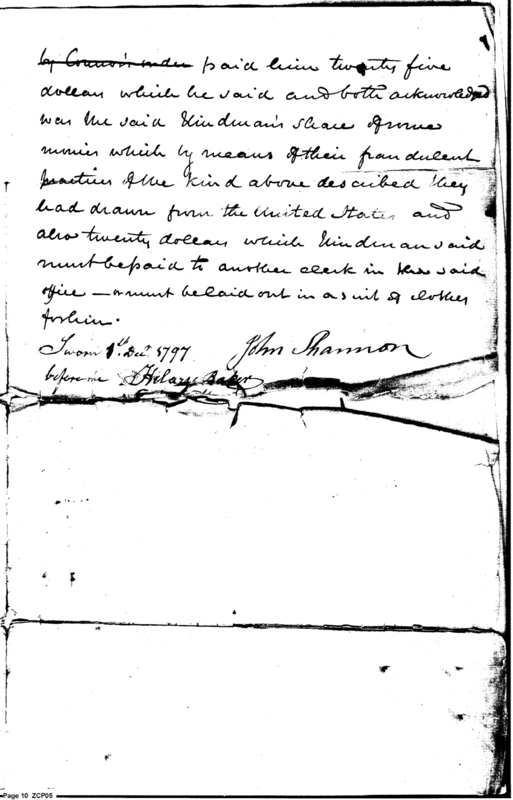 by Connor's order paid him twenty five
dollars which he said and both acknowledged
was the said Hindman's share of some
monies which by means of their fraudulent
practices of the kind above described they
had drawn from the United States and
also twenty dollars which Hindman said
must be paid to another clerk in the said
office — or must be laid out in a suit of clothes
for him.
Sworn 1st Decr. 1797 John Shannon
before me Hilary Baker
Page 10 ZCP05